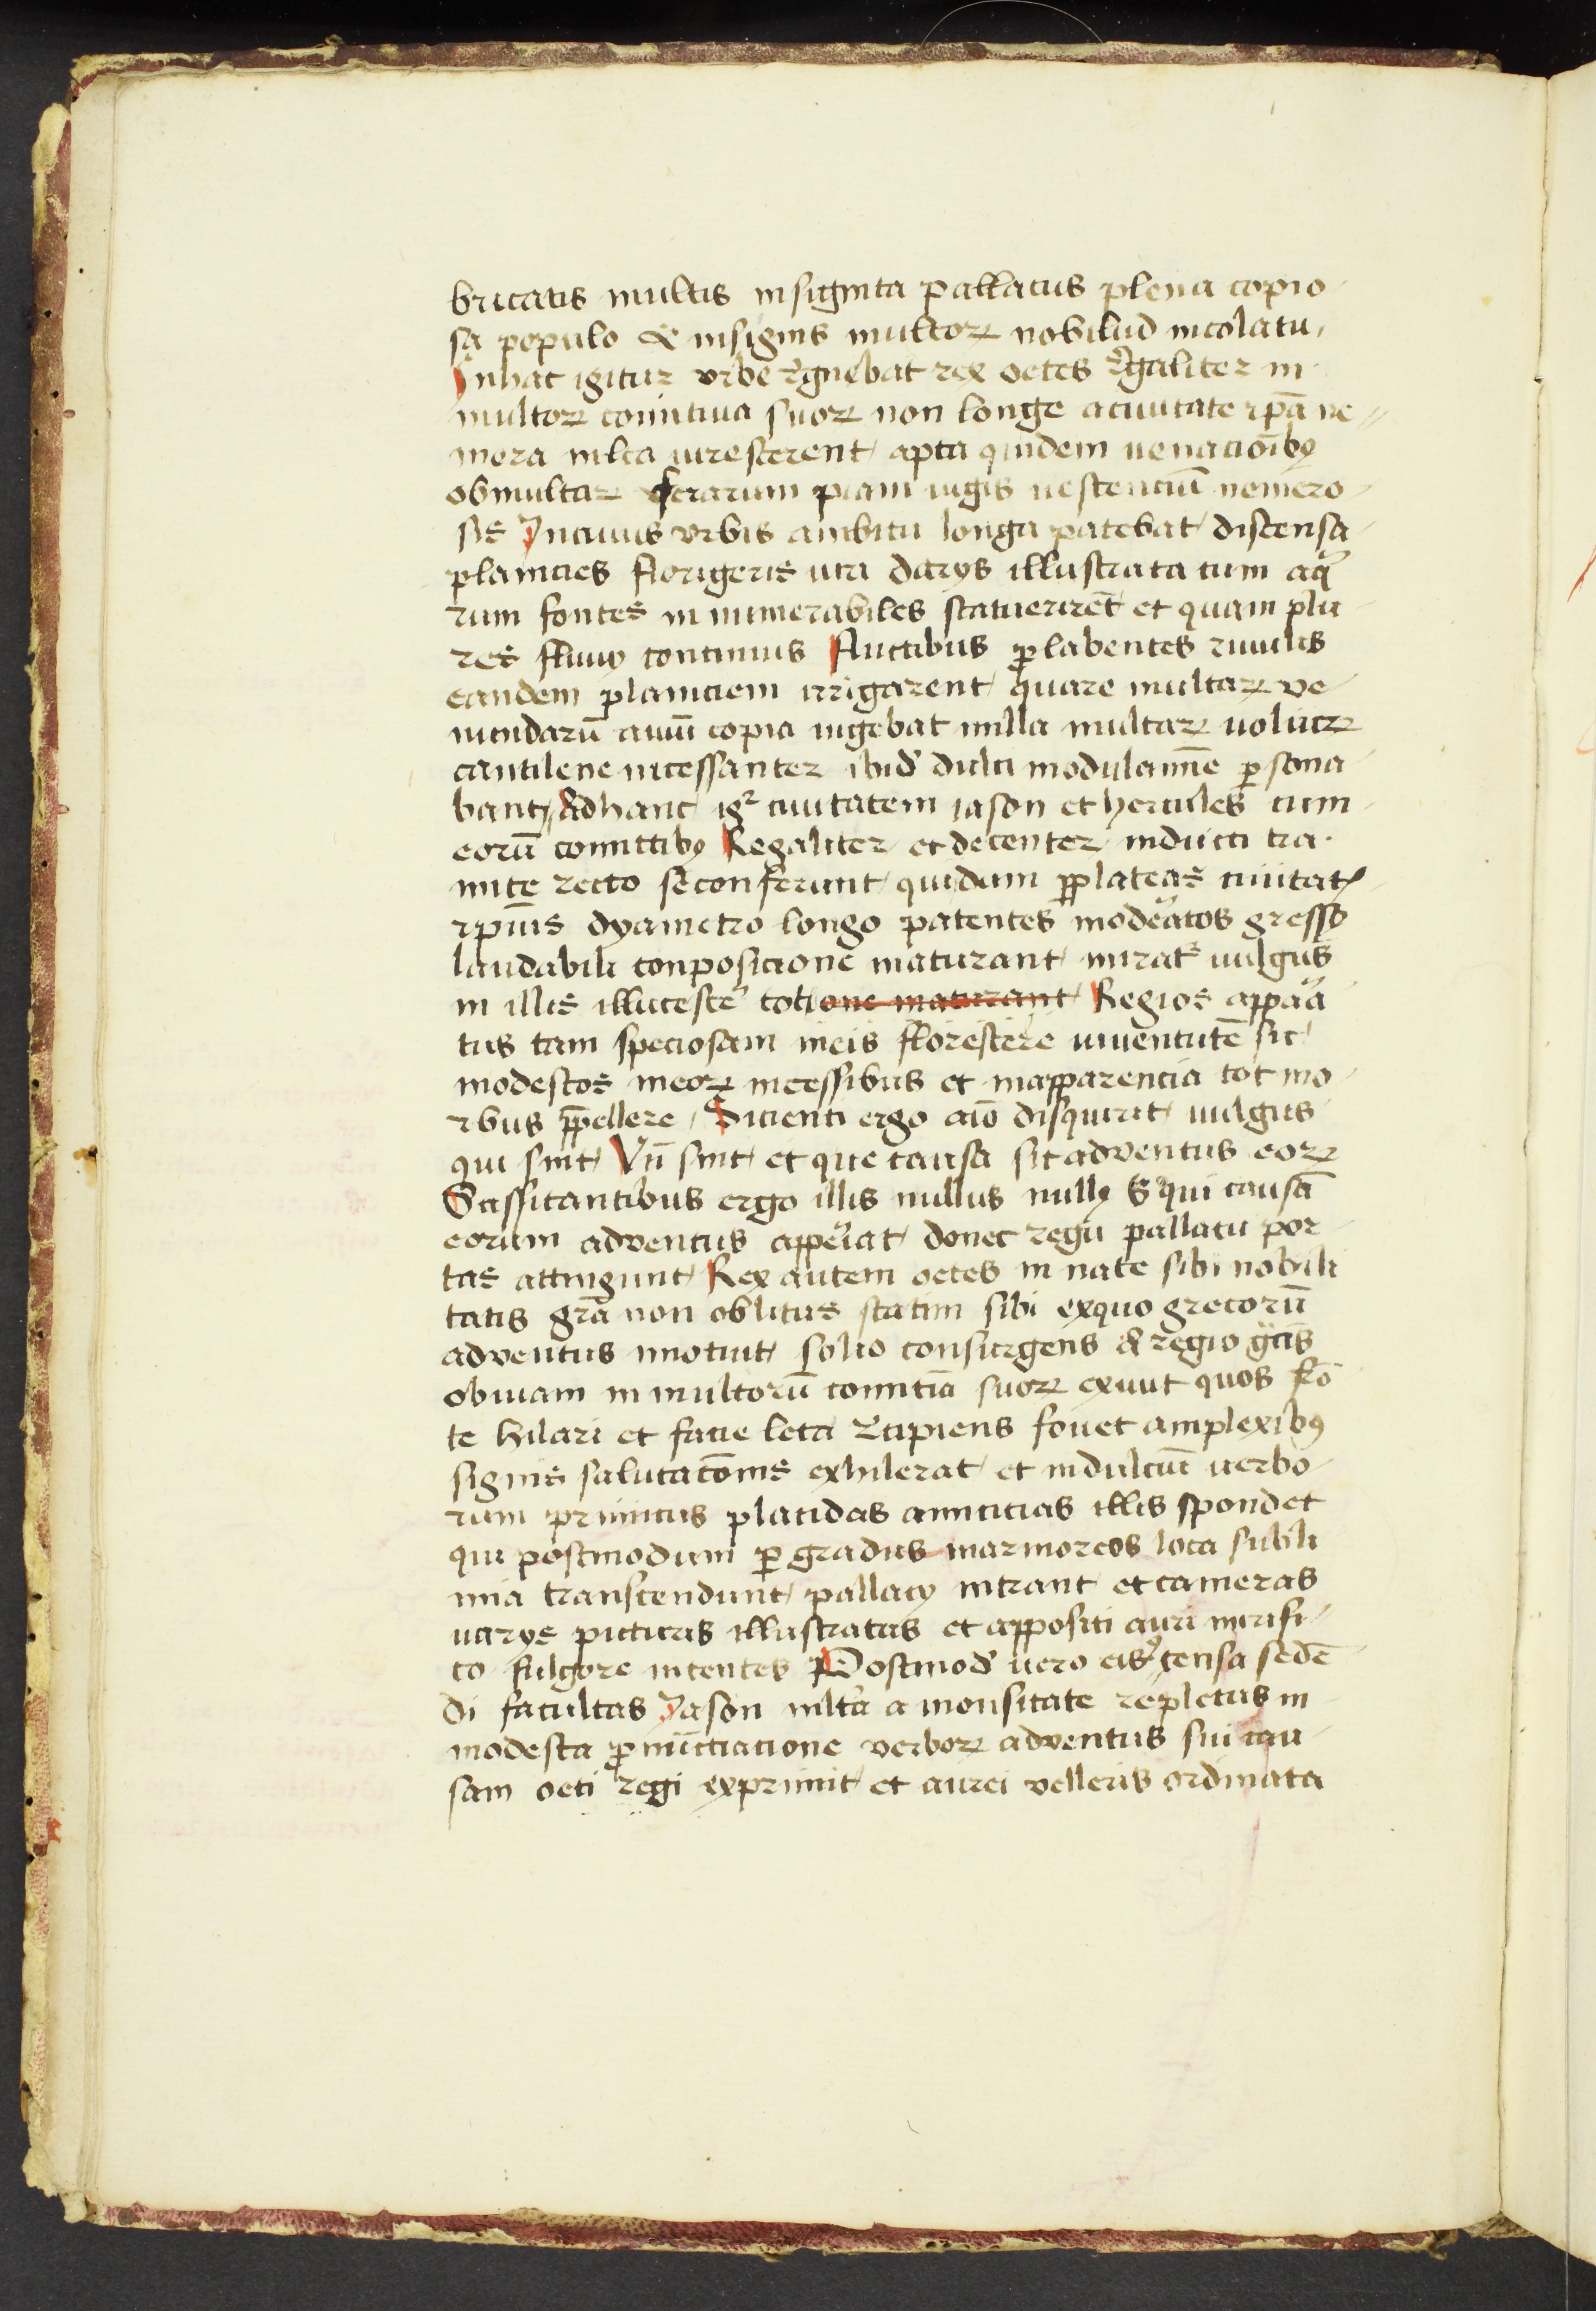 bricatis multis insignita pallaciis plena copio
sa populo & insignis multoꝝ nobiliūd incolatu
Inhac igitur vrbe rͤgnebat rex oetes rͤgaliter in
multoꝝ comitiua suoꝝ non longe aciuitate ip̄a ne
mora nīlta uirescerent apta quidem uenacioībꝫ
obmultaꝝ ferarum p̲iam iugis uescenciū nemero
sis Incuius vrbis ambitu longa patebat discensa
planicies florigeris uiri darijs illustrata cum aqͣ
rum fontes in numerabiles scatuerirēt et quam plu
res fluuij continuis fluctibus ꝓlabentes riuulis
eandem planiciem irrigarent quare multaꝝ ve
nundarū auiū copia uigebat nulla multaꝝ uolucꝝ
cantilene incessanter ibid̓ dulci modulamīe ꝑsona
bant Adhanc igꝰ ciuitatem iason et hercules cum
eorū comitibꝫ Regaliter et decenter inducti tra
mite recto seconferunt quidum ꝑplateas ciuitatꝭ
ip̄ius dyametro longo patentes modeͣatos gressꝰ
laudabili conposicione maturant miratᷣ uulgus
in illis illucesceͬ tot one maturant Regios appaͣa
tus tam speciosam ineis florescere iuuentutē sic
modestos ineoꝝ incessibus et inapparencia tot mo
ribus p̄pellere Sicienti ergo aīo disquirit uulgus
qui sint Vn̄ sint et que causa sit adventus eoꝝ
Sassitantibus ergo illis nullus nullꝫ Sͣqui causā
eorum adventus appeͥiat donec regii pallacii por
tas attingunt Rex autem oetes in nate sibi nobili
tatis grā non oblitus statim sibi exquo grecorū
adventus inotuit solio consurgens & regio gͣtis
obuiam in multorū comitiā suoꝝ exiuit quos frō
te hilari et facie leta Rͤcipiens fouet amplexibꝫ
signis salutacōnis exhilerat et indulciū uerbo
rum primicus placidas amicicias illis spondet
qui postmodum ꝑ gradus marmoreos loca subli
mia transcendunt pallacij intrant et cameras
uarijs picturis illustratas et appositi auri mirifi
co fulgore intentes Postmod̓ uero eis ꝯcensa sedē
di facultas Iason nīlta a monsitate repletus in
modesta ꝓnūcciacione verboꝝ adventus sui cau
sam oeti regi exprimit et aurei velleris ordinata